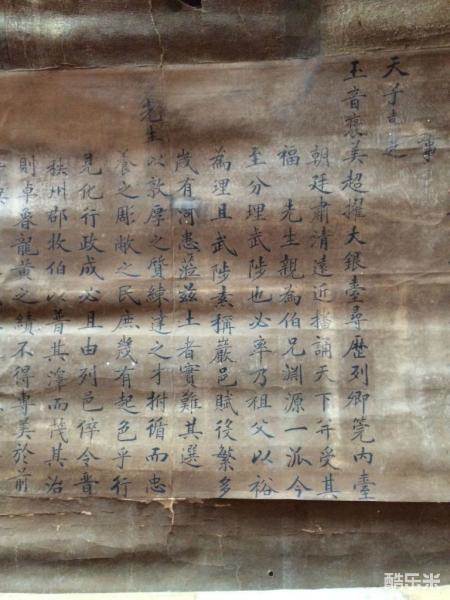 事
天子
玉音褒美超擢大銀臺尋歷列卿筦內臺
朝廷肅清遠近播誦天下并受其
福 先生親為伯兄淵源一派今
至分理武陟也必率乃祖父以裕
為理且武陟素稱嚴邑賦役繁多
歲有河患蒞茲土者實難其選
先生以敦厚之質練達之才拊循而忠
養之彫敝之民庶幾有起色乎行
見化行政成必且由列邑倅令晋
秩州郡牧伯以普其澤而茂其治
則卓魯龍黃之績不得專美於前
酷乐米